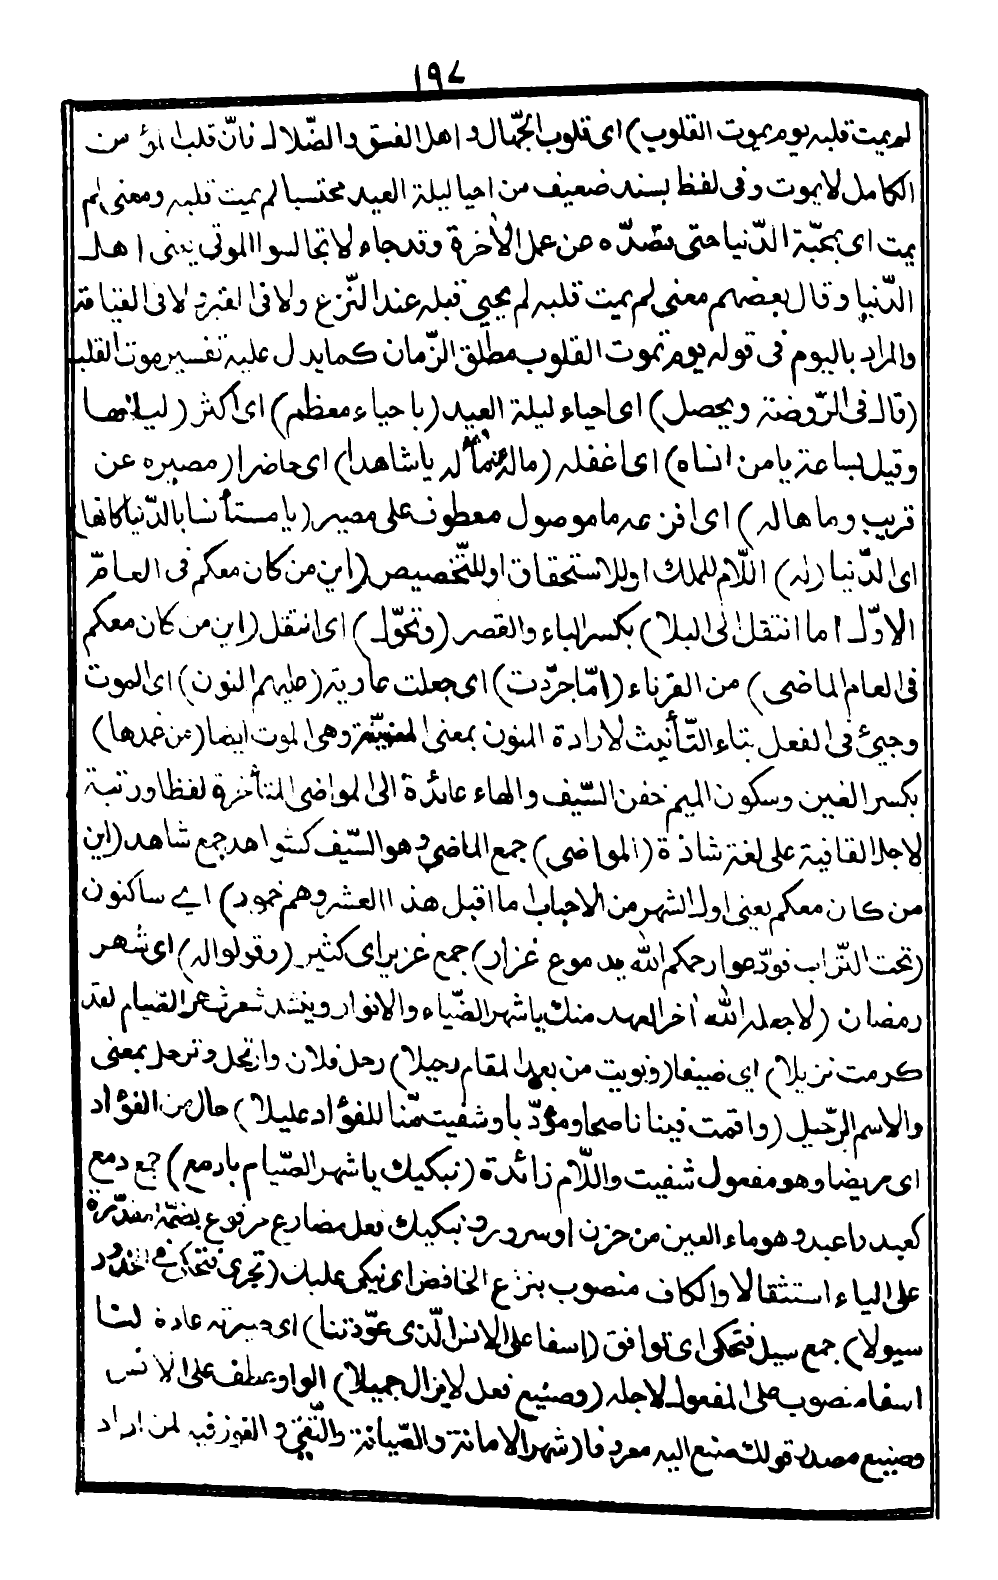 ١٩٧
لم يمت قلبه يوم يموت القلوب) اى قلوب الجهّال و اهل الفسق و الضّلال فانّ قلب المؤمن
الكامل لا يموت وفى لفظ بسند ضعيف من احيا ليلة العيد محتسبا لم يمت قلبه ومعنى لم
يمت اى بمحبّة الدّنيا حتى تصدّه عن عمل الأخرة وقد جاء لا تجالسوا الموتى يعنى اهل
الدّنيا وقال بعضهم معنى لم يمت قلبه لم يحيى قبله عند النّزع ولا فى القبر ولا فى القيامة
والمراد باليوم فى قوله يوم تموت القلوب مطلق الزّمان كما يدل عليه تفسير موت القلب
(قال فى الرّوضة ويحصل) اى احياء ليلة العيد (باحياء معظم) اى اكثر (ليلتها
وقيل بساعة يا من انساه) اى اغفله (ماله منماله يا شاهدا) اى حاضرا (مصيره عن
قريب وما هاله) اى افزعه ما موصول معطوف على مصير (يا مستأنسا بالدّنيا كانها)
اى الدّنيا (له) اللّام للملك او للاستحقاق او للتّخصيص (اين من كان معكم فى العام
الاوّل اما انتقل الى البلا) بكسر الباء والقصر (وتحوّل) اى انتقل (اين من كان معكم
فى العام الماضى) من القرناء (امّا جرّدت) اى جعلت عارية (عليهم المنون) اى الموت
وجئ فى الفعل بتاء التّأنيث لارادة المنون بمعنى المنيّة وهى الموت ايضا (من غمدها)
بكسر الغين وسكون الميم خفن السّيف والهاء عائدة الى المواضى المتأخرة لفظا ورتبة
لاجل القافية على لغة شاذة (المواضى) جمع الماضى وهو السّيف كشواهد جمع شاهد (اين
من كان معكم يعنى اول الشهر من الاحباب اما اقبل هذا العشر وهم خمود) اى ساكنون
(تحت التّراب فودّعوا رحمكم الله بدموع غزار) جمع غزير اى كثير (وقولوا له) اى شهر
رمضان (لا جعله الله أخر العهد منك يا شهر الضّياء والانوار وينشد شعر شهر الصّيام لقد
كرمت نزيلا) اى ضيفا (ونويت من بعد المقام رحيلا) رحل فلان وارتحل وترحل بمعنى
والاسم الرّحيل (واقمت فينا ناصحا ومؤدّبا وشفيت منّا للفؤاد عليلا) حال من الفؤاد
اى مريضا وهو مفعول شفيت واللّام زائدة (نبكيك يا شهر الصّيام بادمع) جمع دمع
كعبد واعبد وهو ماء العين من حزن او سرور ونبكيك فعل مضارع مرفوع بضمّة مقدّرة
على الياء استثقالا والكاف منصوب بنزع الخافض اى نبكى عليك (تجرى فتحكى فى الخدود
سيولا) جمع سيل فتحكى اى توافق (اسفا على الانس الّذى عوّدتنا) اى صيرته عادة لنا
اسفا منصوب على المفعول لاجله (وصنيع فعل لا يزال جميلا) الواو عطف على الانس
وصنيع مصدر قولك صنع اليه معروفا (شهر الامانة والصّيانة والتّقى و الفوز فيه لمن اراد